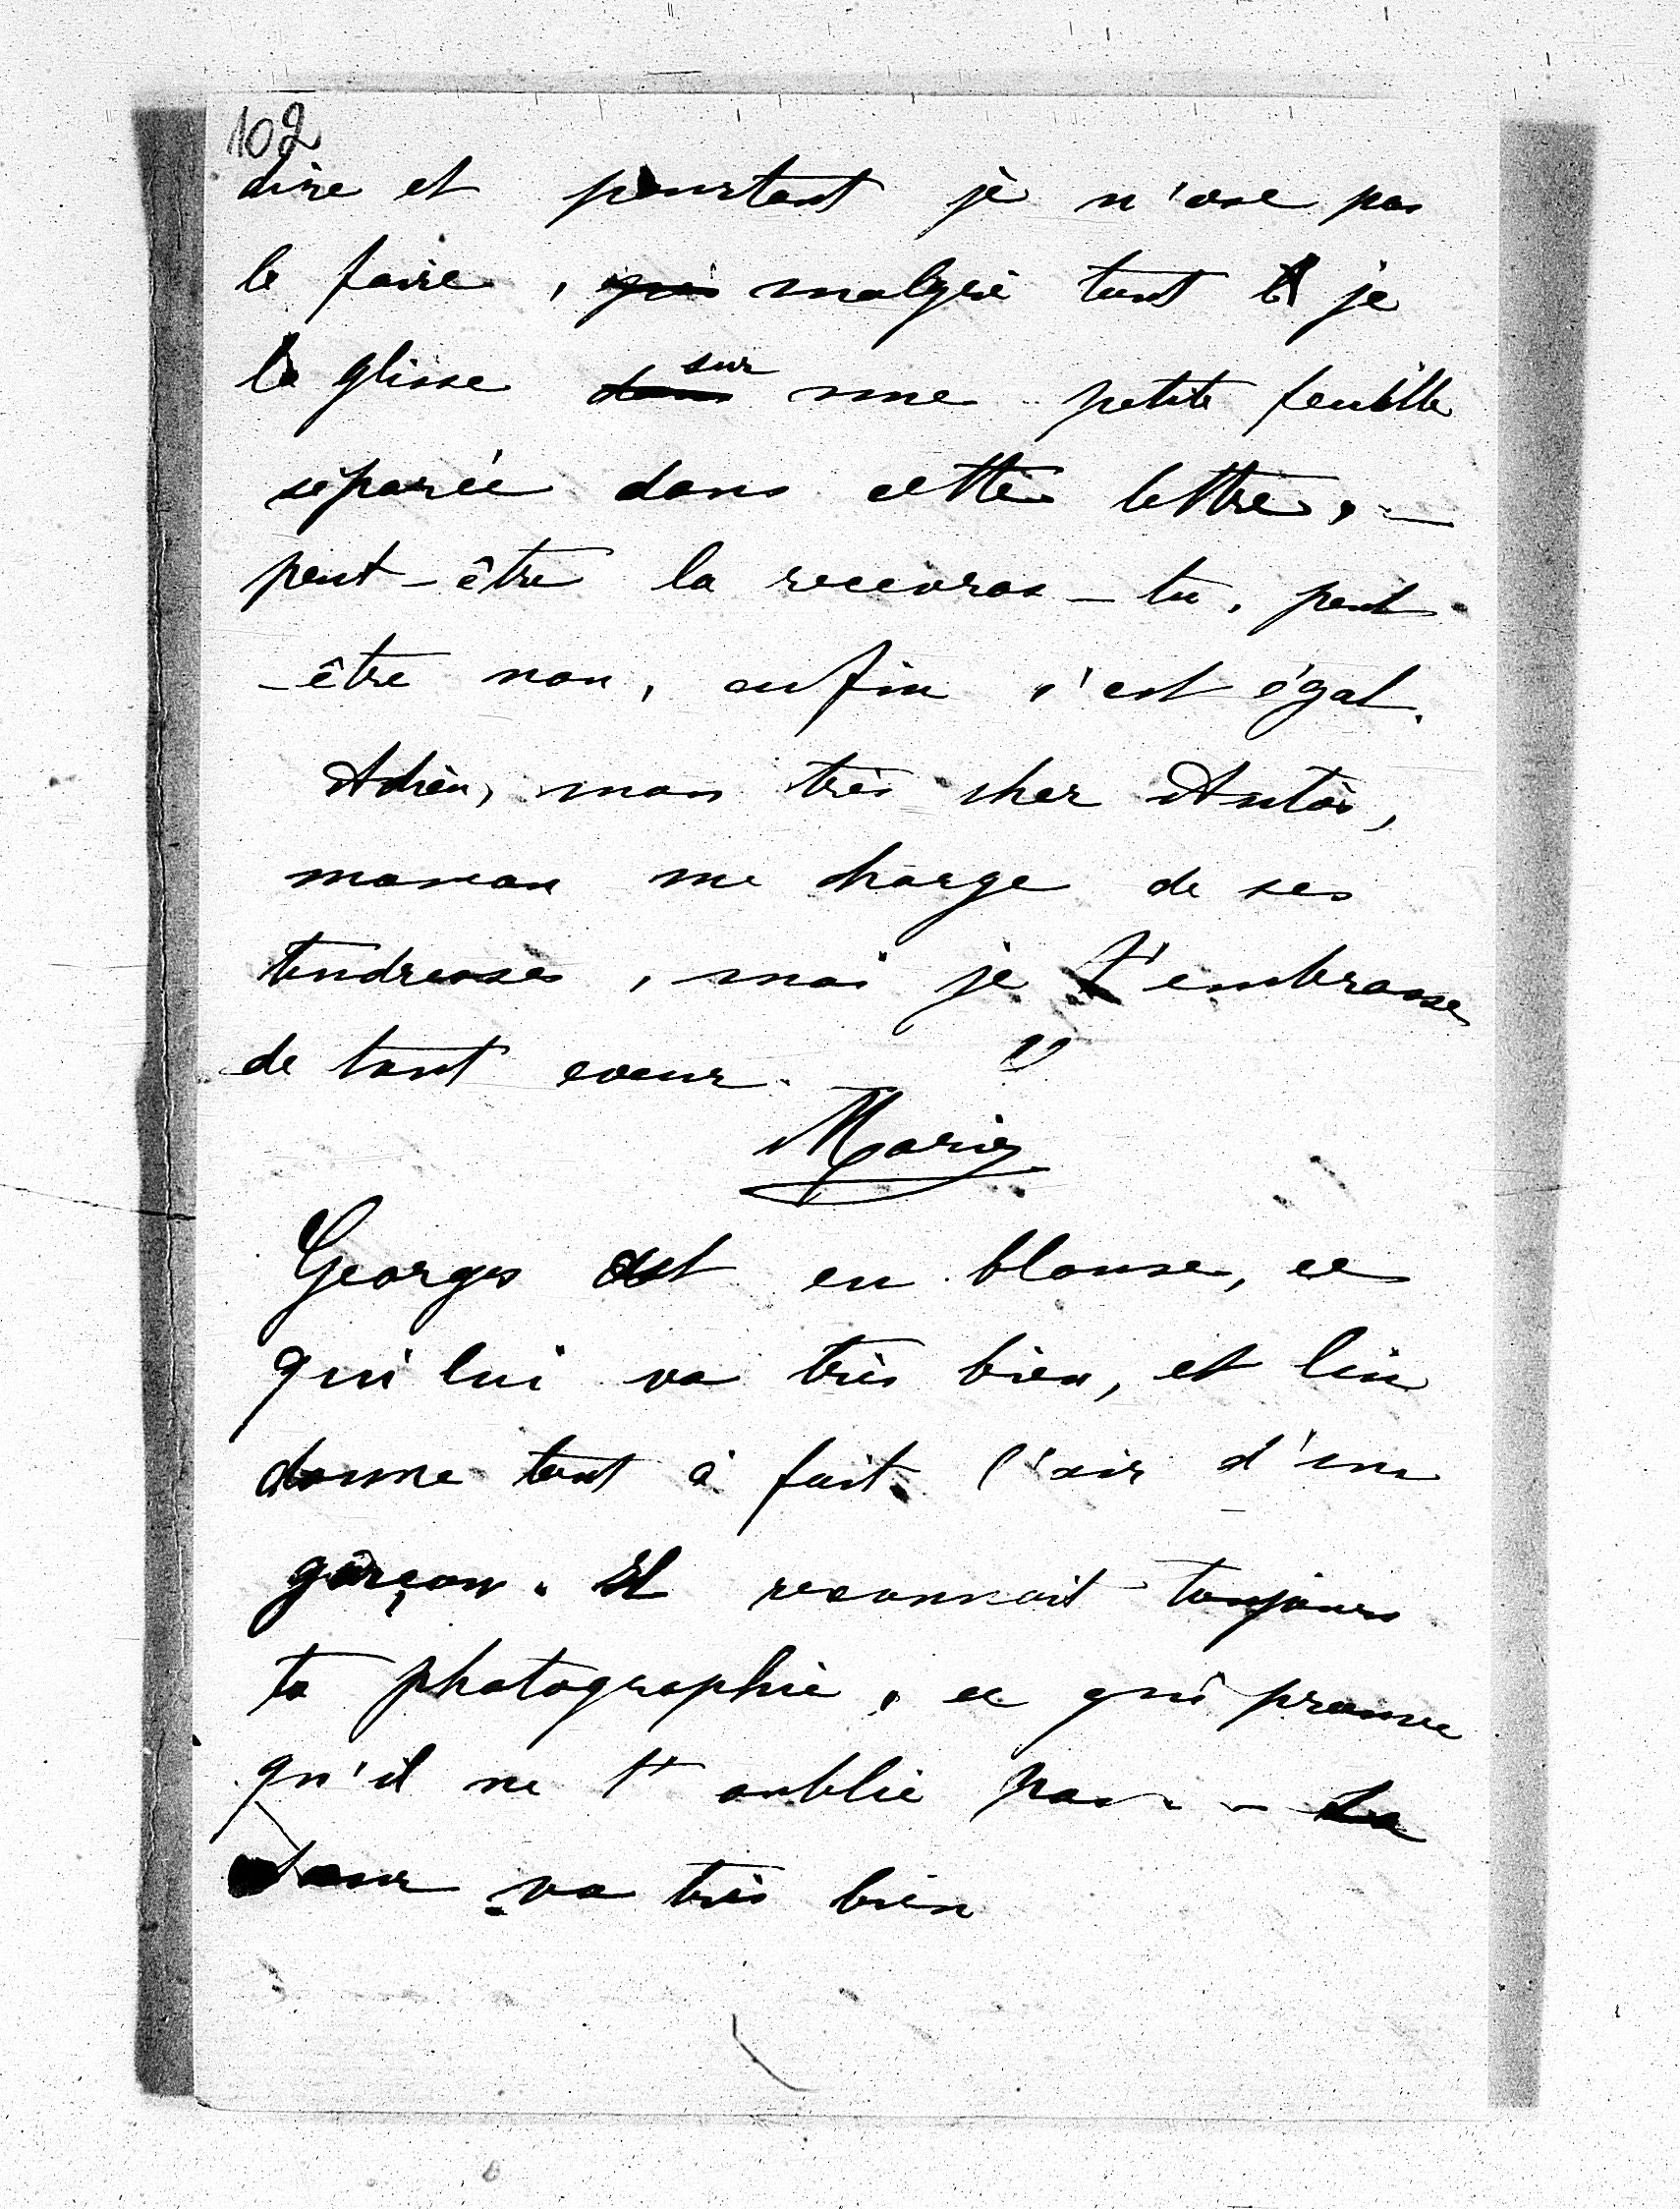 102
dire et pourtant je n'ose pas
le faire, malgré tout je
le glisse sur une petite feuille
séparée dans cette lettre, —
peut-être la recevras-tu, peut
-être non, enfin c'est égal.
Adieu, mon très cher
maman me charge de ses
tendresses, moi je t'embrasse
de tout coeur.
Marie
Georges est en blouse, ce
qui lui va très bien, et lui
donne tout à fait l'air d'un
garçon. Il reconnait toujours
ta photographie, ce qui prouve
qu'il ne t'oublie pas. - La
va très bien